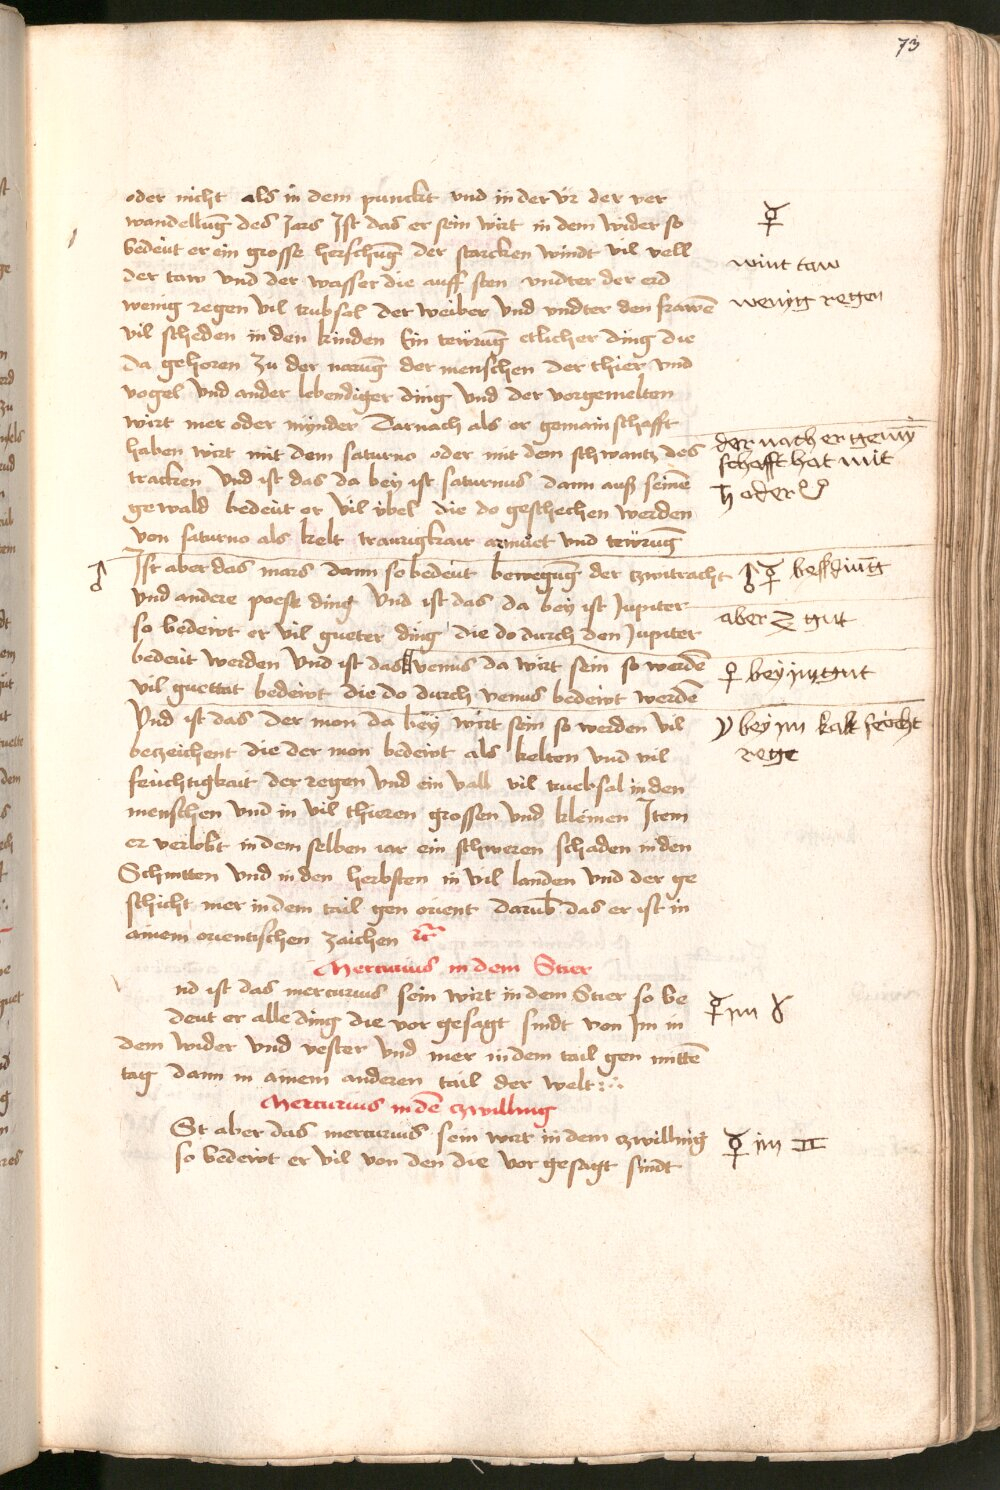 73
oder nicht als in dem punckt vnd in der vr der ver
wandellūg des Jars Ist das er sein wirt in dem wider so
bedeut er ein grosse herschūg der starcken windt vil vell
der taw vnd der wasser die auff sten vndter der erd
wenig regen vil trubsal der weiber vnd vndter den frawē
vil scheden in den kinden Ein tewrūg etlicher ding die
da gehoren zu der narūg der menschen der thier vnd
vogel vnd ander lebendiger ding vnd der vorgemelten
wirt mer oder mynder Darnach als er gemainschafft
haben wirt mit dem saturno oder mit dem schwantz des
tracken vnd ist das da bey ist saturnus dann auß seinē
gewald bedeut er vil vbel die do geschechen werden
von saturno als kelt traurigkait armuet vnd tewrūg
Ist aber das mars dann so bedeut bewegūg der zwitracht
vnd andere poese ding vnd ist das da bey ist Jupiter
so bedeiwt er vil gueter ding die do durch den Jupiter
bedeut werden vnd ist das venus da wirt sein so werdē
vil guettat bedeiwt die do durch venus bedeiwt werdē
Vnd ist das der mon da bey wirt sein so werden vil
betzeichent die der mon bedeiwt als kelten vnd vil
feuchtigkait der regen vnd ein vall vil truebsal in den
menschen vnd in vil thieren grossen vnd kleinen Item
er verlobt in dem selben iar ein schweren schaden in den
Schnitten vnd in den herbsten in vil landen vnd der ge
schicht mer in dem tail gen orient darūb das er ist in
ainem orientischen zaichen
Mercurius in dem Stier
nd ist das mercurius sein wirt in dem Stier so be
deut er alle ding die vor gesagt sindt von Im in
dem wider vnd vester vnd mer in dem tail gen mittē
tag dann in ainem anderen tail der welt
Mercurius in dē zwilling
St aber das mercurius sein wirt in dem zwilling
so bedeiwt er vil von den die vor gesagt sindt
☿
wint taw
wenyg regen
der nach er gemȳ
schafft hat mit
♄ oder ☋
♂ ☿
aber ♃ gut
♀ bey im gut
☽ bey im kalt feücht
rege
☿ im ♉
☿ im ♊